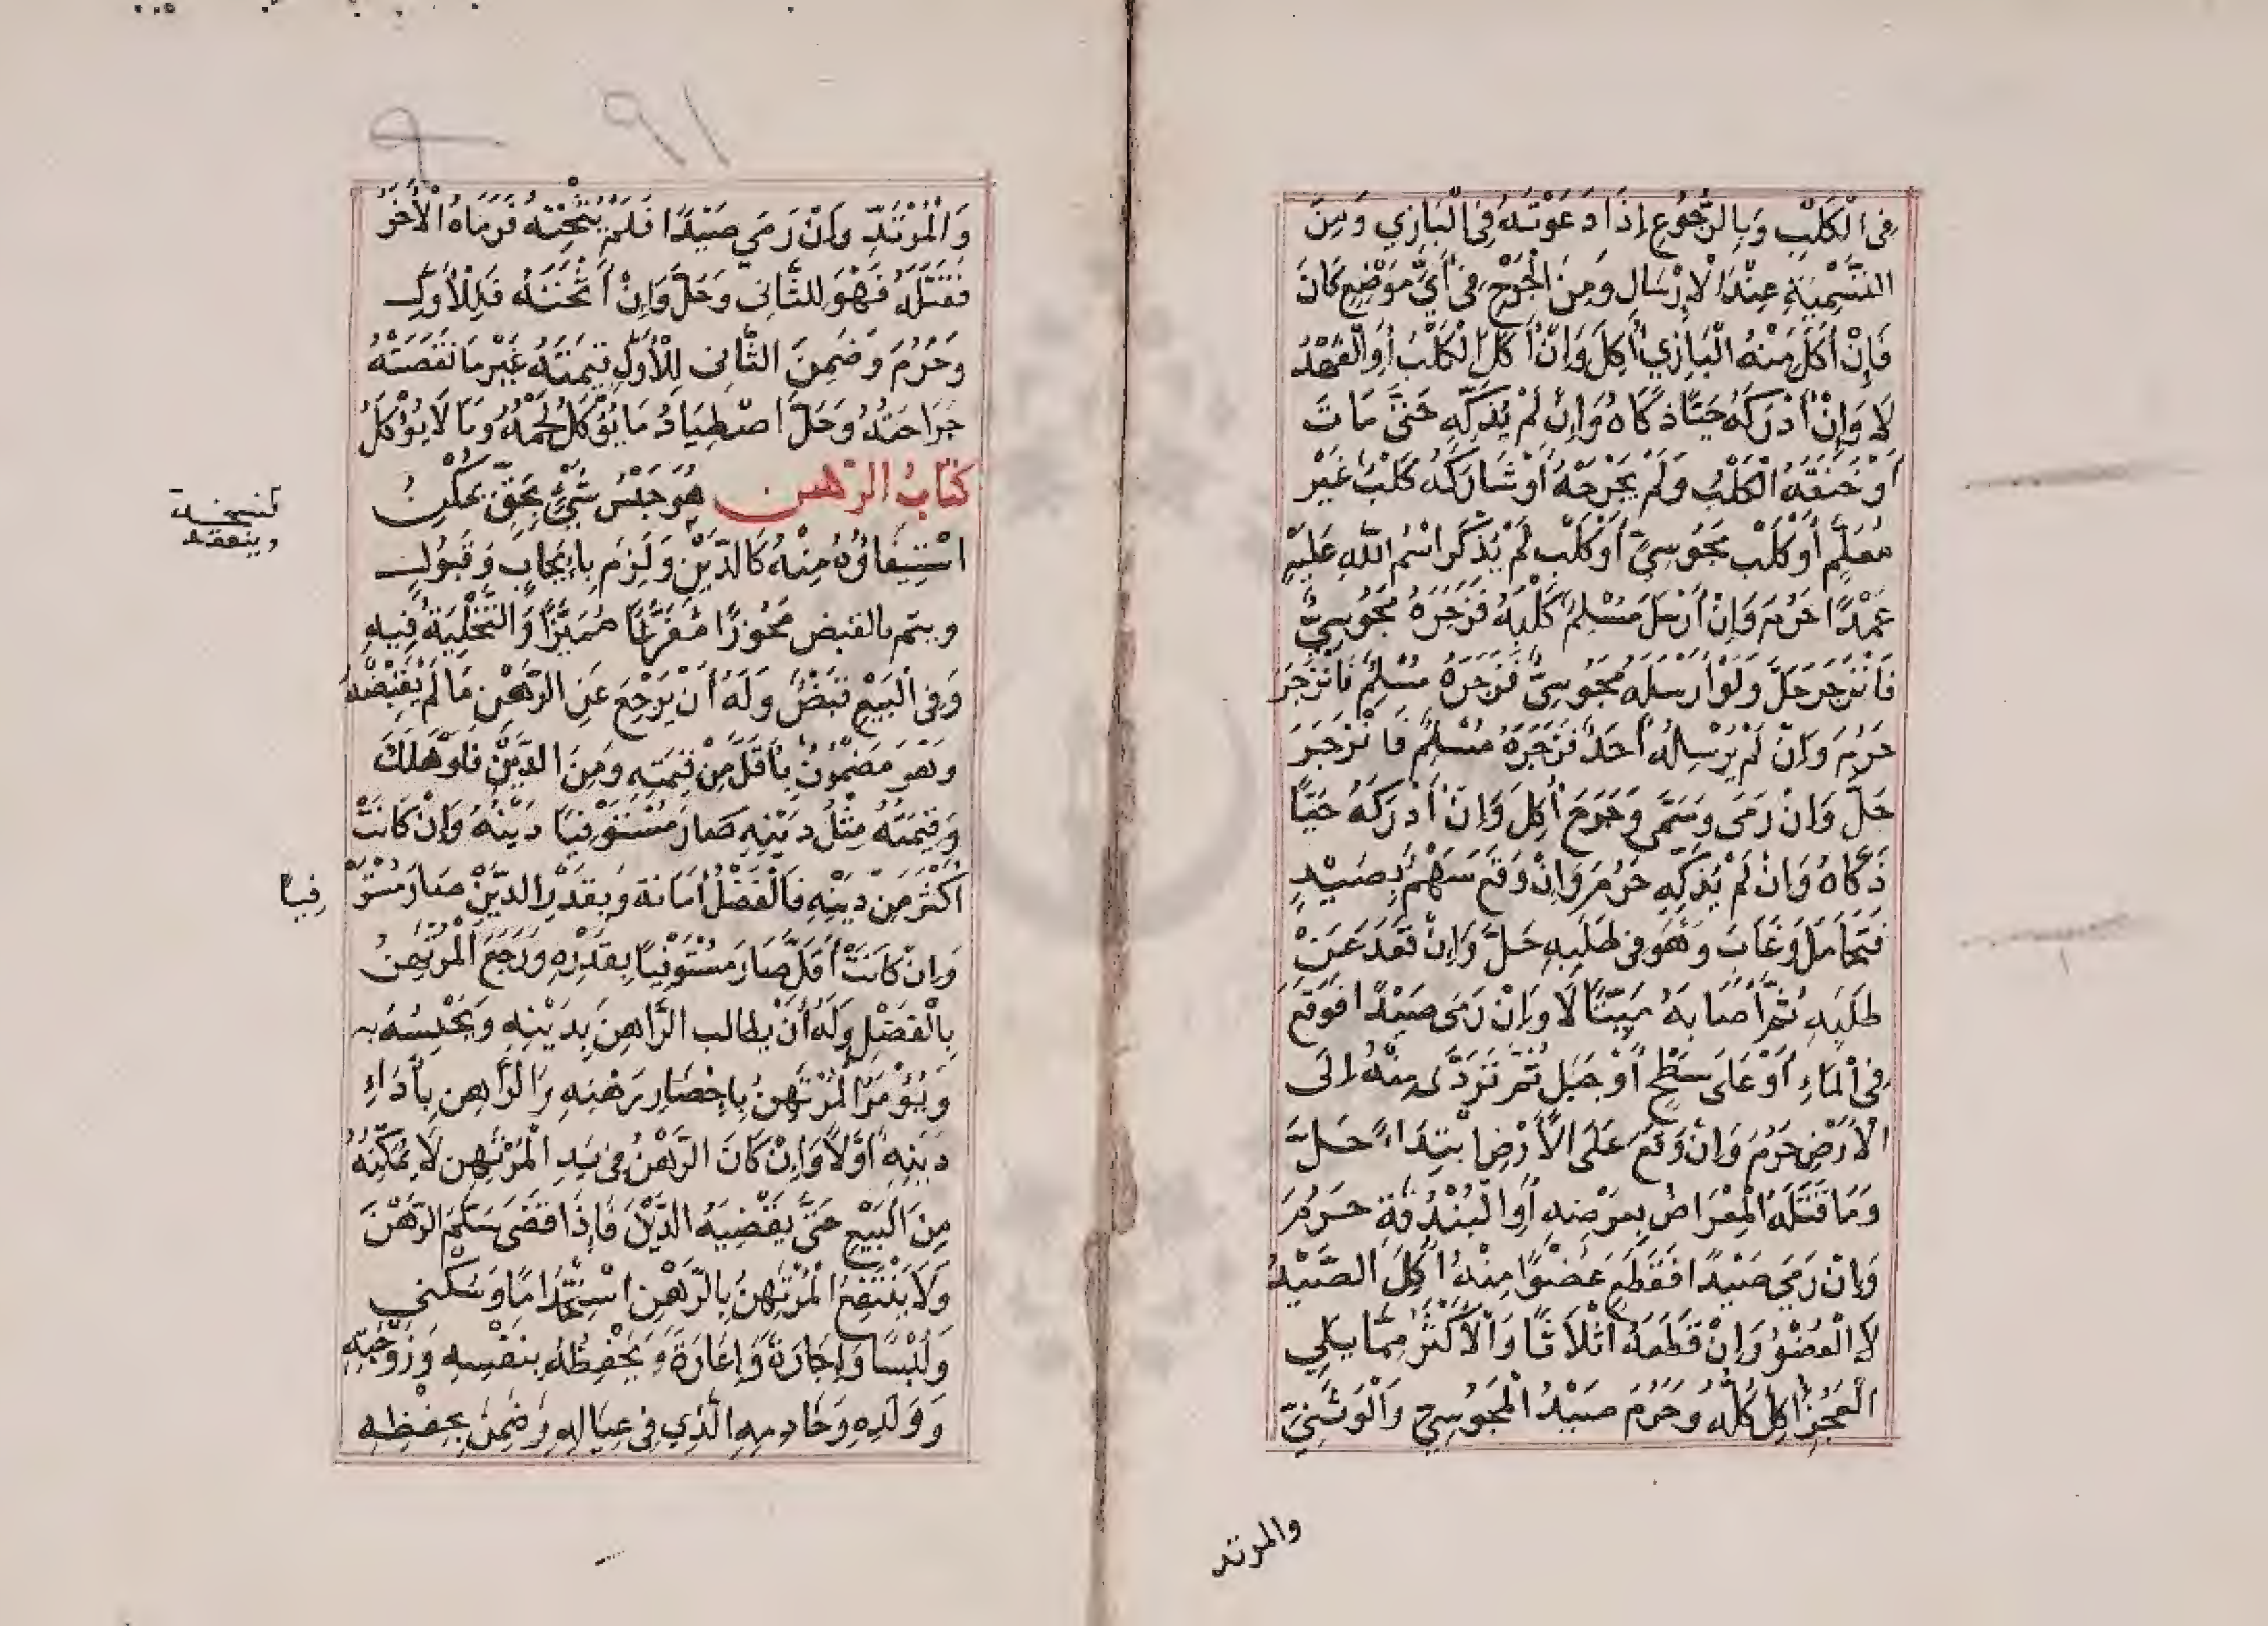 فِي الْكَلْبِ وَبِالرُّجُوعِ إِذَا دَعَوْتَهُ فِي الْبَازِي وَمِنَ
التَّسْمِيَةِ عِنْدَ الْإِرْسَالِ وَمِنَ الْجَرْحِ فِي أَيِّ مَوْضِعٍ كَانَ
فَإِنْ أَكَلَ مِنْهُ الْبَازِي أُكِلَ وَإِنْ أَكَلَ الْكَلْبُ أَوِ الْفَهْدُ
لَا وَإِنْ أَدْرَكَهُ حَيًّا ذَكَّاهُ وَإِنْ لَمْ يُذَكِّهِ حَتَّى مَاتَ
أَوْ خَنَقَهُ الْكَلْبُ وَلَمْ يَجْرَحْهُ أَوْ شَارَكَهُ كَلْبٌ غَيْرُ
مُعَلَّمٍ أَوْ كَلْبُ مَجُوسِيٍّ أَوْ كَلْبٌ لَمْ يُذْكَرِ اسْمُ اللَّهِ عَلَيْهِ
عَمْدًا حَرُمَ وَإِنْ أَرْسَلَ مُسْلِمٌ كَلْبَهُ فَزَجَرَهُ مَجُوسِيٌّ
فَانْزَجَرَ حَلَّ وَلَوْ أَرْسَلَهُ مَجُوسِيٌّ فَزَجَرَهُ مُسْلِمٌ فَانْزَجَرَ
حَرُمَ وَإِنْ لَمْ يُرْسِلْهُ أَحَدٌ فَزَجَرَهُ مُسْلِمٌ فَانْزَجَرَ
حَلَّ وَإِنْ رَمَى وَسَمَّى وَجَرَحَ أُكِلَ وَإِنْ أَدْرَكَهُ حَيًّا
ذَكَّاهُ وَإِنْ لَمْ يُذَكِّهِ حَرُمَ وَإِنْ وَقَعَ سَهْمٌ بِصَيْدٍ
فَتَحَامَلَ وَغَابَ وَهُوَ فِي طَلَبِهِ حَلَّ وَإِنْ قَعَدَ عَنْ
طَلَبِهِ ثُمَّ أَصَابَهُ مَيِّتًا لَا وَإِنْ رَمَى صَيْدًا فَوَقَعَ
فِي الْمَاءِ أَوْ عَلَى سَطْحٍ أَوْ جَبَلٍ ثُمَّ تَرَدَّى مِنْهُ إِلَى
الْأَرْضِ حَرُمَ وَإِنْ وَقَعَ عَلَى الْأَرْضِ ابْتِدَاءً حَلَّ
وَمَا قَتَلَهُ الْمِعْرَاضُ بِعَرْضِهِ أَوِ الْبُنْدُقَةِ حَرُمَ
وَإِنْ رَمَى صَيْدًا فَقَطَعَ عُضْوًا مِنْهُ أُكِلَ الصَّيْدُ
لَا الْعُضْوُ وَإِنْ قَطَعَهُ أَثْلَاثًا وَالْأَكْثَرُ مِمَّا يَلِي
الْعَجُزَ أُكِلَ كُلُّهُ وَحَرُمَ صَيْدُ الْمَجُوسِيِّ وَالْوَثَنِيِّ
والمرتد
٩١
وَالْمُرْتَدِّ وَإِنْ رَمَى صَيْدًا فَلَمْ يُثْخِنْهُ فَرَمَاهُ الْآخَرُ
فَقَتَلَهُ فَهُوَ لِلثَّانِي وَحَلَّ وَإِنْ أَثْخَنَهُ فَلِلْأَوَّلِ
وَحَرُمَ وَضَمِنَ الثَّانِي لِلْأَوَّلِ قِيمَتَهُ غَيْرَ مَا نَقَصَتْهُ
جِرَاحَتُهُ وَحَلَّ اصْطِيَادُ مَا يُؤْكَلُ لَحْمُهُ وَمَا لَا يُؤْكَلُ
كِتَابُ الرَّهْنِ هُوَ حَبْسُ شَيْءٍ بِحَقٍّ يُمْكِنُ
اسْتِيفَاؤُهُ مِنْهُ كَالدَّيْنِ وَلَزِمَ بِإِيجَابٍ وَقَبُولٍ
نسخة
وينعقد
ويتم بالقبض مَحُوزًا مُفَرَّغًا مُمَيَّزًا وَالتَّخْلِيَةُ فِيهِ
وَفِي الْبَيْعِ قَبْضٌ وَلَهُ أَنْ يَرْجِعَ عَنِ الرَّهْنِ مَا لَمْ يَقْبِضْهُ
وَهُوَ مَضْمُونٌ بِأَقَلَّ مِنْ قِيمَتِهِ وَمِنَ الدَّيْنِ فَلَوْ هَلَكَ
وَقِيمَتُهُ مِثْلُ دَيْنِهِ صَارَ مُسْتَوْفِيًا دَيْنَهُ وَإِنْ كَانَتْ
أَكْثَرَ مِنْ دَيْنِهِ فَالْفَضْلُ أَمَانَة وَبِقَدْرِ الدَّيْنِ صَارَ مُسْتَوْ فِيًا
وَإِنْ كَانَتْ أَقَلَّ صَارَ مُسْتَوْفِيًا بِقَدْرِهِ وَرَجَعَ الْمُرْتَهِنُ
بِالْفَضْلِ وَلَهُ أَنْ يُطَالِبَ الرَّاهِنَ بِدَيْنِهِ وَيَحْبِسَهُ بِهِ
وَيُؤْمَرُ الْمُرْتَهِنُ بِإِحْضَارِ رَهْنِهِ وَالرَّاهِنُ بِأَدَاءِ
دَيْنِهِ أَوَّلًا وَإِنْ كَانَ الرَّهْنُ فِي يَدِ الْمُرْتَهِنِ لَا يُمَكِّنُهُ
مِنَ الْبَيْعِ حَتَّى يَقْضِيَهُ الدَّيْنَ فَإِذَا قَضَى سَلَّمَ الرَّهْنَ
وَلَا يَنْتَفِعُ الْمُرْتَهِنُ بِالرَّهْنِ اسْتِخْدَامًا وَسُكْنَى
وَلُبْسًا وَإِجَارَةً وَإِعَارَةً وَيَحْفَظُهُ بِنَفْسِهِ وَزَوْجَتِهِ
وَوَلَدِهِ وَخَادِمِهِ الَّذِي فِي عِيَالِهِ وَضَمِنَ بِحِفْظِهِ